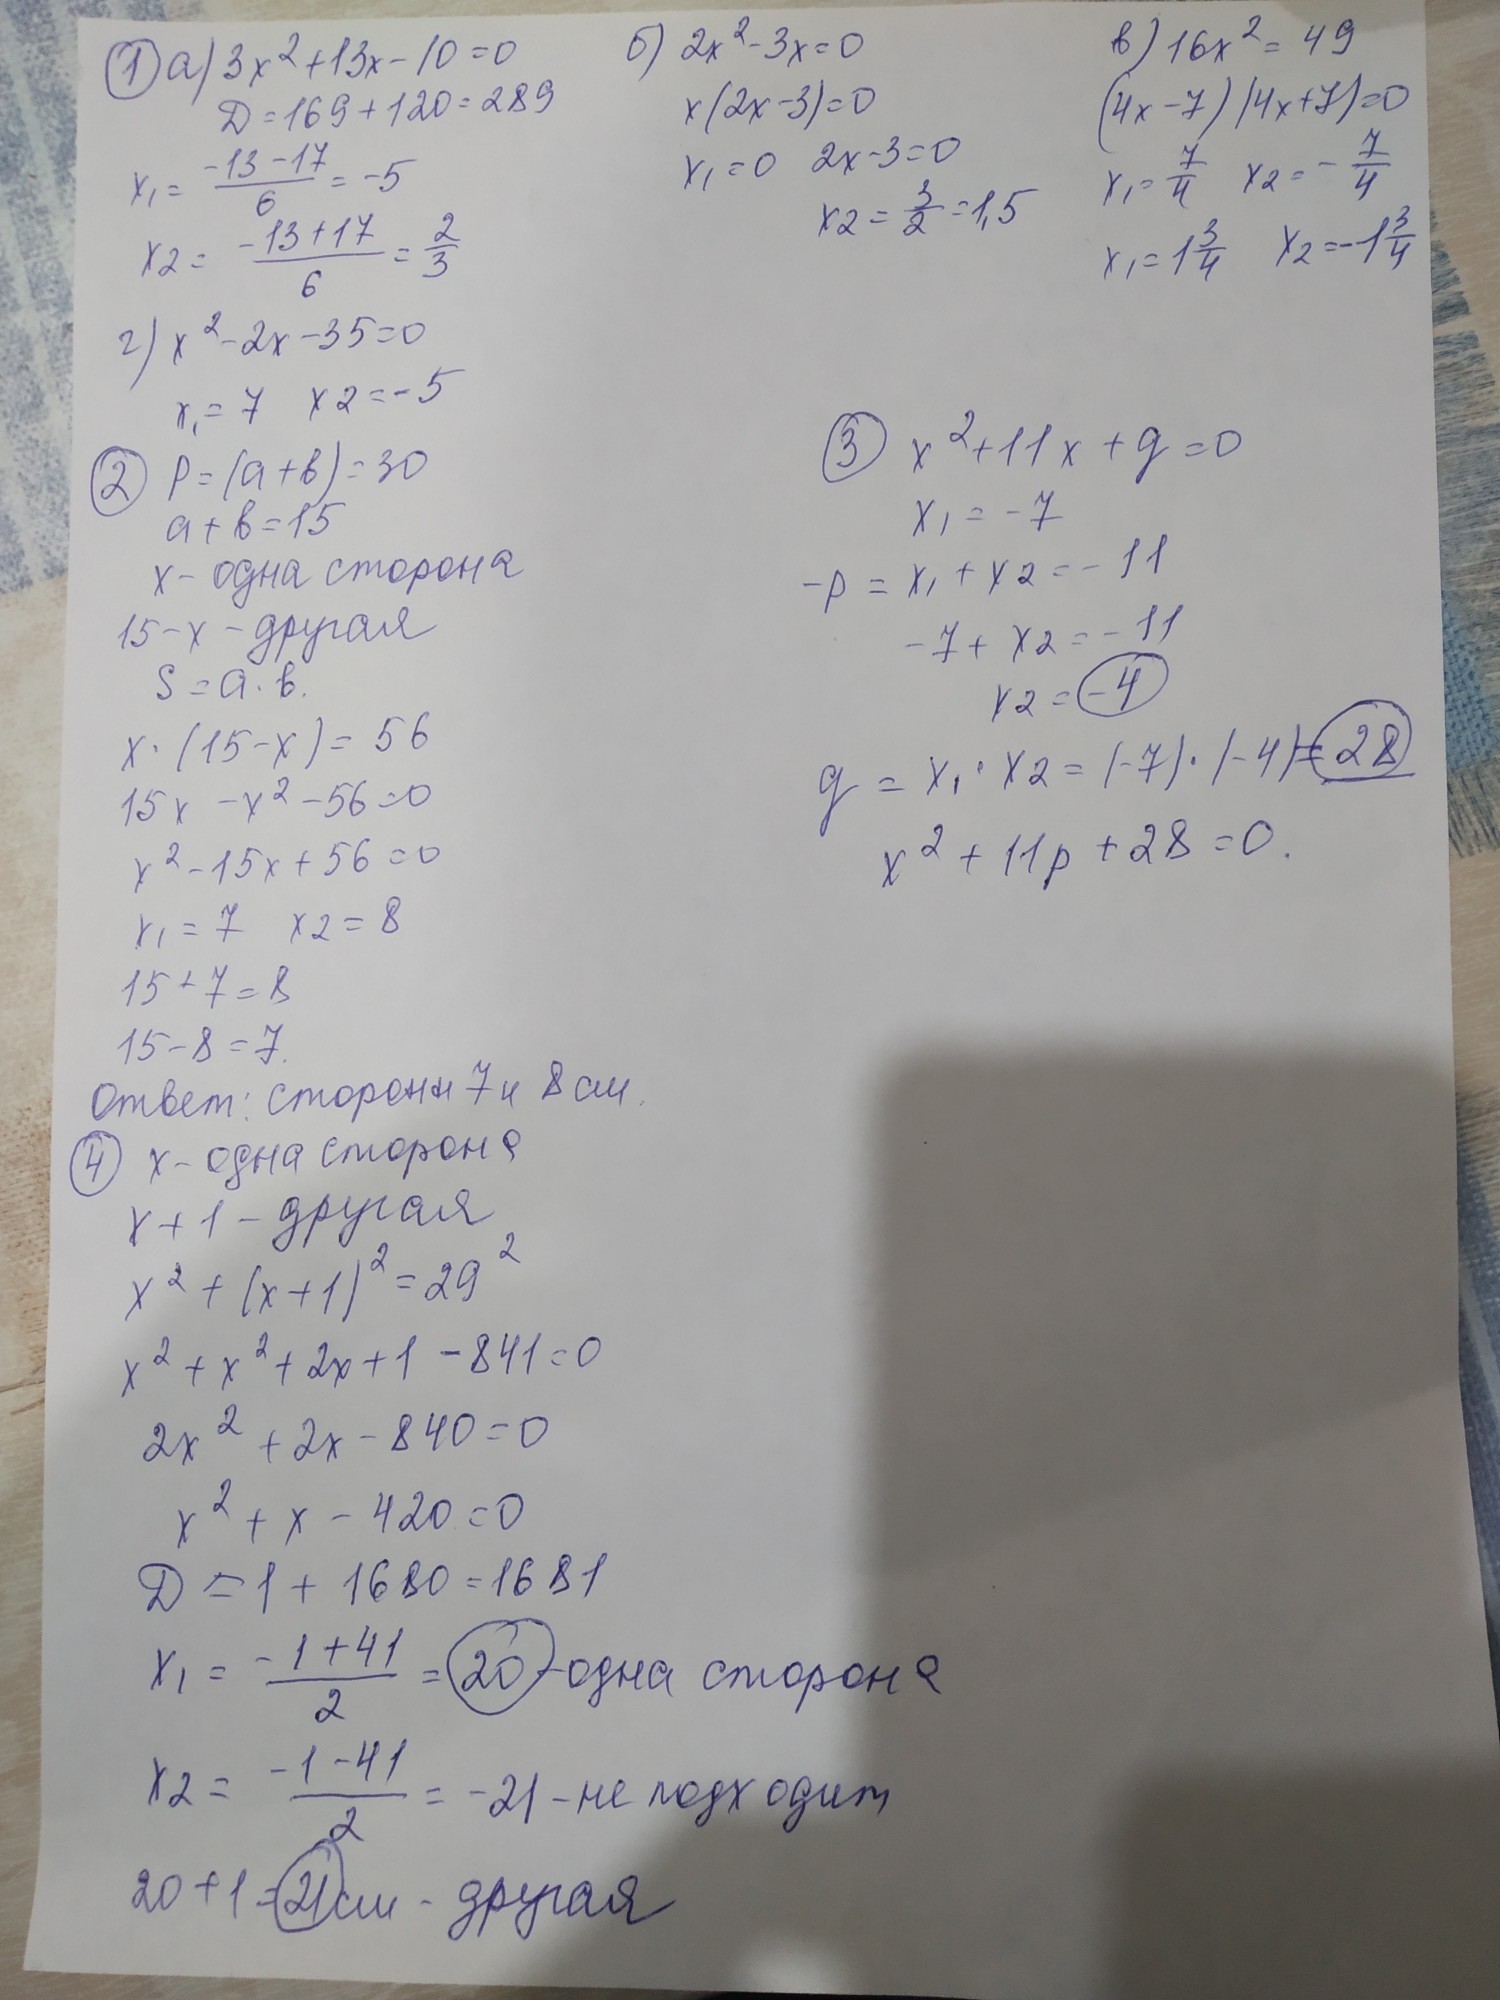 ① а) 3x² + 13x - 10 = 0
D = 169 + 120 = 289
x₁ = (-13 - 17)/6 = -5
x2 = (-13 + 17)/6 = 2/3
б) 2x² - 3x = 0
x(2x - 3) = 0
x₁ = 0 2x - 3 = 0
x2 = 3/2 = 1,5
в) 16x² = 49
(4x - 7)(4x + 7) = 0
x₁ = 7/4 x2 = - 7/4
x₁ = 1 3/4 x2 = -1 3/4
г) x² - 2x - 35 = 0
x₁ = 7 x2 = -5
② P = (a + b) = 30
a + b = 15
x - одна сторона
15 - x - другая
S = a · b.
x · (15 - x) = 56
15x - x² - 56 = 0
x² - 15x + 56 = 0
x₁ = 7 x2 = 8
15 + 7 = 8
15 - 8 = 7.
Ответ: стороны 7 и 8 см.
③ x² + 11x + g = 0
x₁ = -7
-p = x₁ + x2 = -11
-7 + x2 = -11
x2 = -4
g = x₁ · x2 = (-7) · (-4) = 28
x² + 11p + 28 = 0.
④ x - одна сторона
x + 1 - другая
x² + (x + 1)² = 29²
x² + x² + 2x + 1 - 841 = 0
2x² + 2x - 840 = 0
x² + x - 420 = 0
D = 1 + 1680 = 1681
x₁ = (-1 + 41)/2 = 20 - одна сторона
x2 = (-1 - 41)/2 = -21 - не подходит
20 + 1 = 21 см - другая